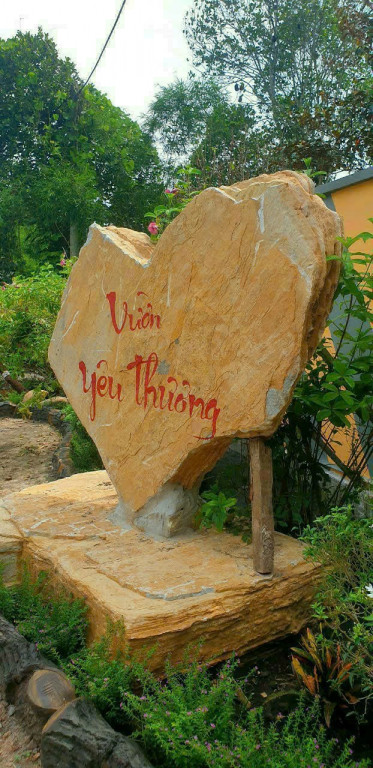 Vườn
yêu thương